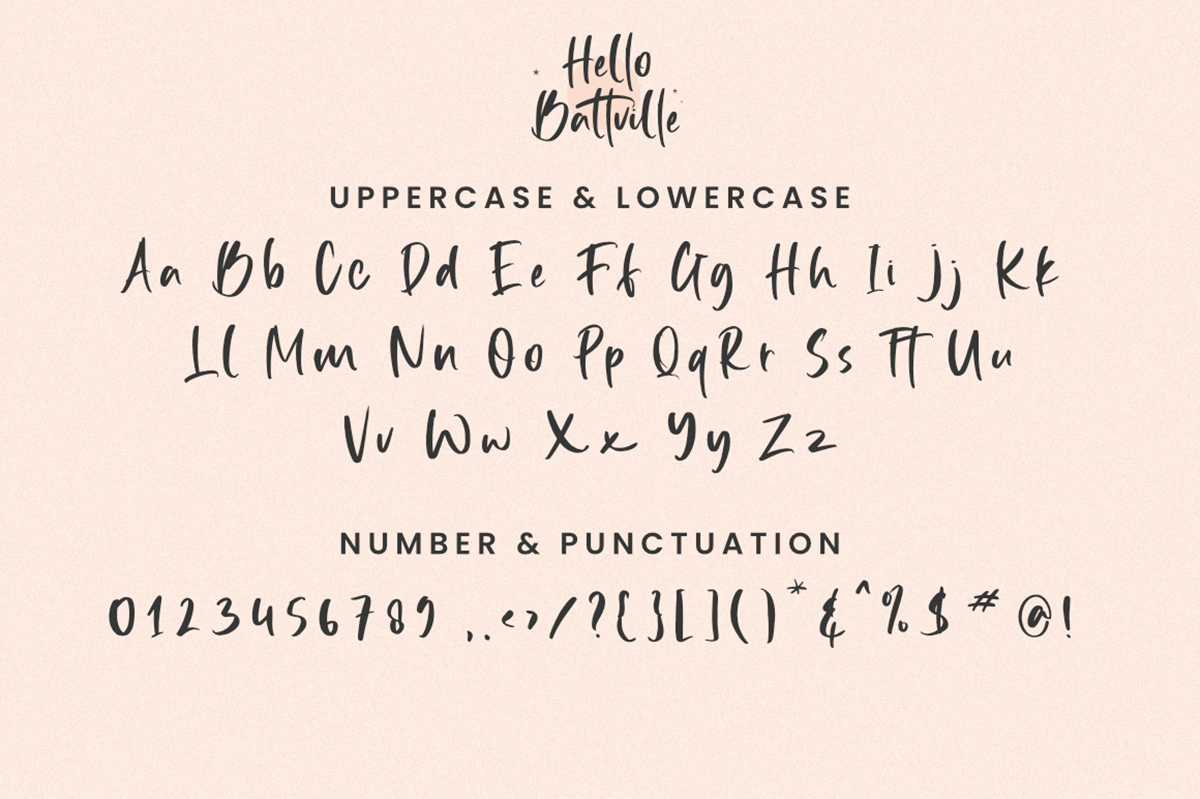 Hello
Battville
UPPERCASE & LOWERCASE
Aa Bb Cc Dd Ee Ff Gg Hh Ii Jj Kk
Ll Mm Nn Oo Pp Qq Rr Ss Tt Uu
Vv Ww Xx Yy Zz
NUMBER & PUNCTUATION
0123456789 ,.<>/?{}[]()*&^%$#@!